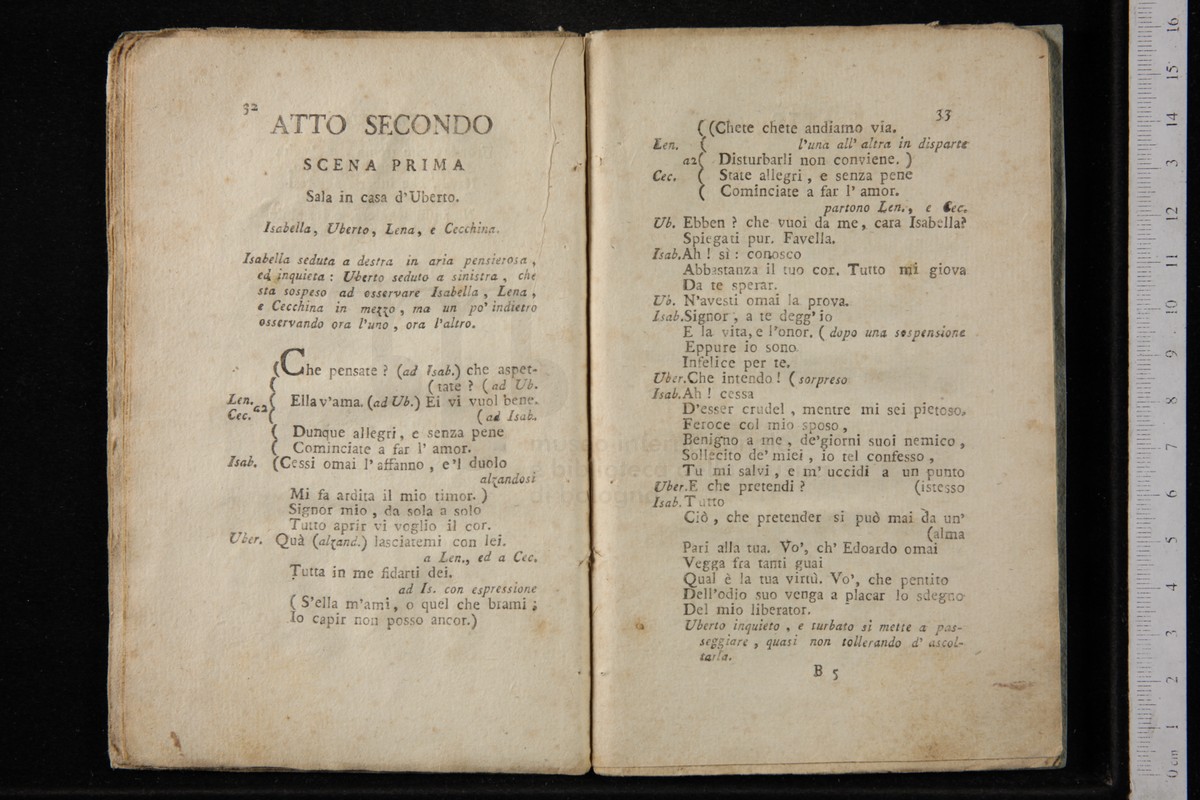 32
ATTO SECONDO
SCENA PRIMA
Sala in casa d'Uberto.
Isabella, Uberto, Lena, e Cecchina.
Isabella seduta a destra in aria pensierosa,
ed inquieta : Uberto seduto a sinistra, che
sta sospeso ad osservare Isabella, Lena,
e Cecchina in mezzo, ma un po' indietro
osservando ora l'uno, ora l'altro.
(Che pensate ? (ad Isab.) che aspet-
( (tate ? (ad Ub.
Len. a2 ( Ella v'ama. (ad Ub.) Ei vi vuol bene.
Cec. ( (ad Isab.
( Dunque allegri, e senza pene
( Cominciate a far l' amor.
Isab. (Cessi omai l' affanno, e'l duolo
alzandosi
Mi fa ardita il mio timor. )
Signor mio, da sola a solo
Tutto aprir vi voglio il cor.
Uber. Quà (alzand.) lasciatemi con lei.
a Len., ed a Cec.
Tutta in me fidarti dei.
ad Is. con espressione
( S'ella m'ami, o quel che brami ;
Io capir non posso ancor.)
33
( (Chete chete andiamo via.
Len. ( l'una all' altra in disparte
a2( Disturbarli non conviene. )
Cec. ( State allegri, e senza pene
( Cominciate a far l' amor.
partono Len., e Cec.
Ub. Ebben ? che vuoi da me, cara Isabella?
Spiegati pur. Favella.
Isab.Ah ! sì : conosco
Abbastanza il tuo cor. Tutto mi giova
Da te sperar.
Ub. N'avesti omai la prova.
Isab.Signor, a te degg' io
E la vita, e l'onor. ( dopo una sospensione
Eppure io sono
Infelice per te.
Uber.Che intendo ! ( sorpreso
Isab.Ah ! cessa
D'esser crudel, mentre mi sei pietoso,
Feroce col mio sposo,
Benigno a me, de'giorni suoi nemico,
Sollecito de' miei, io tel confesso,
Tu mi salvi, e m' uccidi a un punto
Uber.E che pretendi ? (istesso
Isab.Tutto
Ciò, che pretender si può mai da un'
(alma
Pari alla tua. Vo', ch' Edoardo omai
Vegga fra tanti guai
Qual è la tua virtù. Vo', che pentito
Dell'odio suo venga a placar lo sdegno
Del mio liberator.
Uberto inquieto, e turbato si mette a pas-
seggiare, quasi non tollerando d' ascol-
tarla.
B 5
museo inter
biblioteca
di bologna
0 cm 1 2 3 4 5 6 7 8 9 10 11 12 13 14 15 16